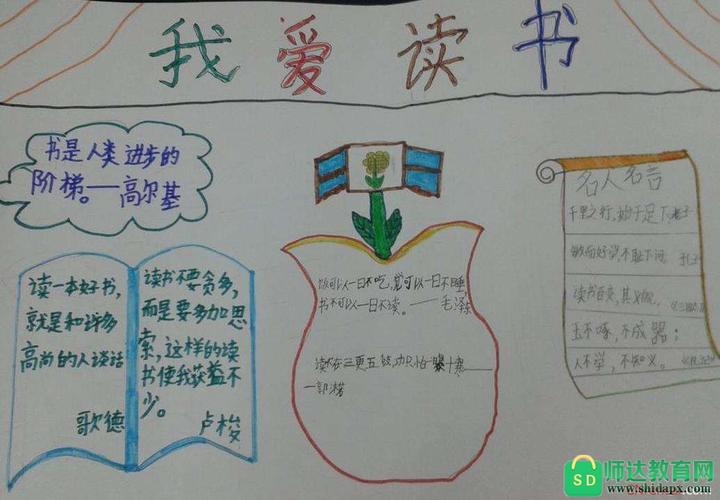 我爱读书
书是人类进步的
阶梯。——高尔基
读一本好书，
就是和许多
高尚的人谈话
歌德
读书不要贪多，
而是要多加思
索，这样的读
书使我获益不
少。
卢梭
饭可以一日不吃，觉可以一日不睡，
书不可以一日不读。——毛泽东
读书三更五
郭沫
名人名言
千里之行，始于足下，老子
敏而好学，不耻下问 孔子
读书百变，其义
玉不啄，不成器；
人不学，不知义。
师达教育网
www.shidapx.com
SD